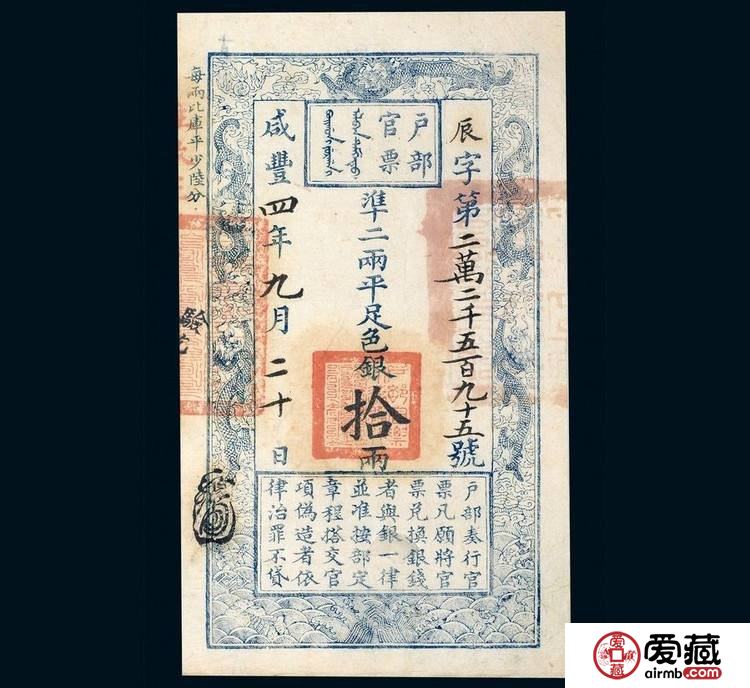 戶部
官票
辰字第二萬二千五百九十五號
準二兩平足色銀拾兩
咸豐四年九月二十日
每兩比庫平少陸分
戶部奉行官
票凡願將官
票兌換銀錢
者與銀一律
並准按部定
章程搭交官
項偽造者依
律治罪不貸
爱藏
airmb.com